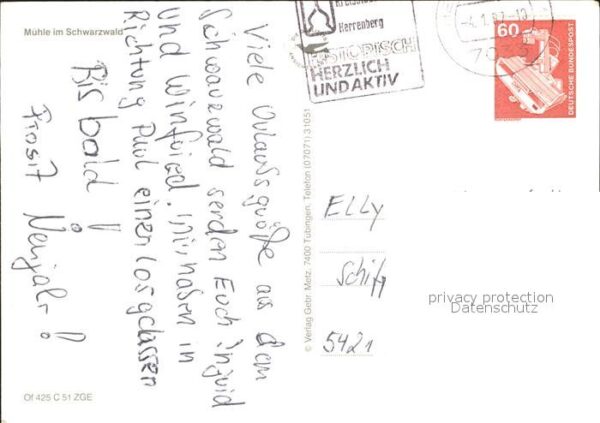 Mühle im Schwarzwald
Viele Urlaubsgrüße aus dem
Schwarzwald senden Euch Ingrid
und Winfried. Wir haben in
Richtung Paul einen losgelassen
Bis bald!
Prosit Neujahr!
Of 425 C 51 ZGE
© Verlag Gebr. Metz, 7400 Tübingen, Telefon (07071) 31051
Herrenberg
HISTORISCH
HERZLICH
UND AKTIV
60
DEUTSCHE BUNDESPOST
Elly
Schiff
5421
privacy protection
Datenschutz